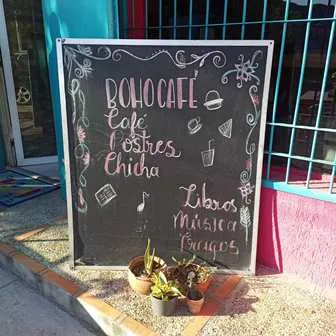 BOHO CAFÉ
Café
Postres
Chicha
Libros
Música
Juegos